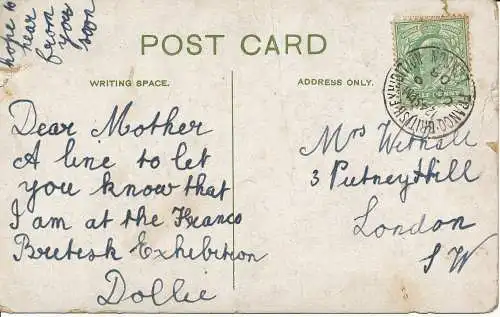 hope to
hear
from
you
soon
POST CARD
WRITING SPACE.
ADDRESS ONLY.
Dear Mother
A line to let
you know that
I am at the Franco
British Exhibition
Dollie
Mrs Withall
3 Putney Hill
London
S W
FRANCO-BRITISH EXHIBITION